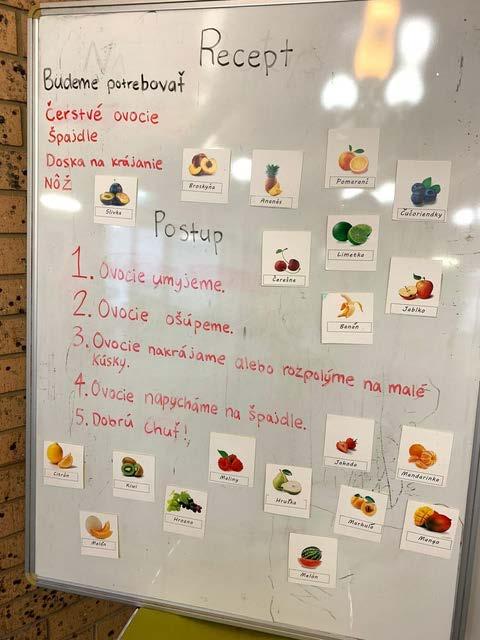 Recept
Budeme potrebovať
Čerstvé ovocie
Špajdle
Doska na krájanie
NÔŽ
Slivka
Broskyňa
Ananás
Pomaranč
Čučoriedky
Postup
Limetka
Čerešne
Jablko
Banán
1. Ovocie umyjeme.
2. Ovocie ošúpeme.
3. Ovocie nakrájame alebo rozpolýme na malé
kúsky.
4. Ovocie napycháme na špajdle.
5. Dobrú chuť!
Citrón
Kiwi
Maliny
Jahoda
Mandarinka
Hrozno
Hruška
Marhuľa
Mango
Melón
Melón